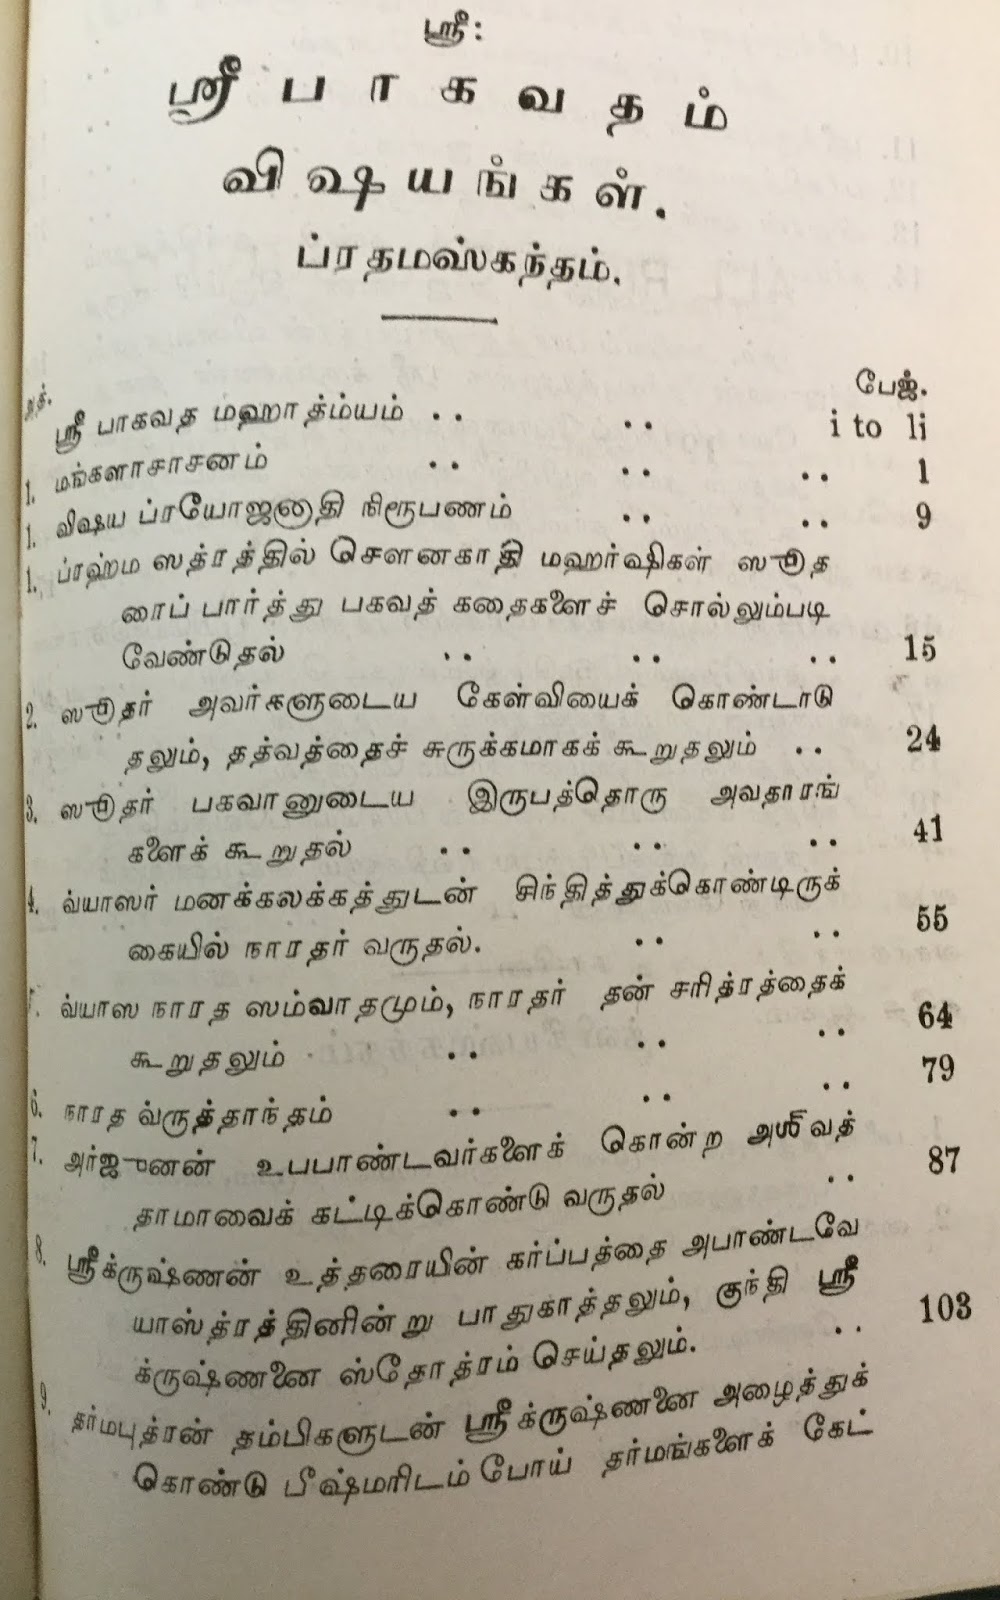 ஸ்ரீ:
ஸ்ரீ பாகவதம்
விஷயங்கள்.
ப்ரதமஸ்கந்தம்.
அத். பேஜ்.
ஸ்ரீ பாகவத மஹாத்ம்யம் .. .. i to li
1. மங்களாசாசனம் .. .. .. 1
1. விஷய ப்ரயோஜனாதி நிரூபணம் .. .. 9
1. ப்ரஹ்ம ஸத்ரத்தில் சௌனகாதி மஹர்ஷிகள் ஸூத
ரைப் பார்த்து பகவத் கதைகளைச் சொல்லும்படி
வேண்டுதல் .. .. .. 15
2. ஸூதர் அவர்களுடைய கேள்வியைக் கொண்டாடு
தலும், தத்வத்தைச் சுருக்கமாகக் கூறுதலும் .. 24
3. ஸூதர் பகவானுடைய இருபத்தொரு அவதாரங்
களைக் கூறுதல் .. .. .. 41
4. வ்யாஸர் மனக்கலக்கத்துடன் சிந்தித்துக்கொண்டிருக்
கையில் நாரதர் வருதல். .. .. 55
5. வ்யாஸ நாரத ஸம்வாதமும், நாரதர் தன் சரித்ரத்தைக்
கூறுதலும் .. .. .. 64
6. நாரத வ்ருத்தாந்தம் .. .. .. 79
7. அர்ஜுனன் உபபாண்டவர்களைக் கொன்ற அஶ்வத்
தாமாவைக் கட்டிக்கொண்டு வருதல் .. 87
8. ஸ்ரீக்ருஷ்ணன் உத்தரையின் கர்ப்பத்தை அபாண்டவே
யாஸ்த்ரத்தினின்று பாதுகாத்தலும், குந்தி ஸ்ரீ
க்ருஷ்ணனை ஸ்தோத்ரம் செய்தலும். .. 103
9. தர்மபுத்ரன் தம்பிகளுடன் ஸ்ரீக்ருஷ்ணனை அழைத்துக்
கொண்டு பீஷ்மரிடம் போய் தர்மங்களைக் கேட்